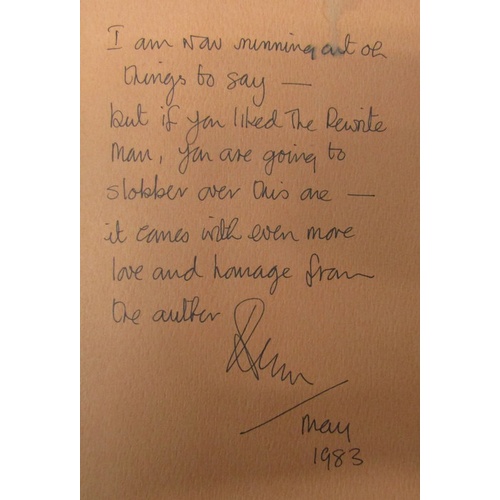 I am now running out of
things to say —
but if you liked The Rewrite
Man, you are going to
slobber over this one —
it comes with even more
love and homage from
the author
May
1983